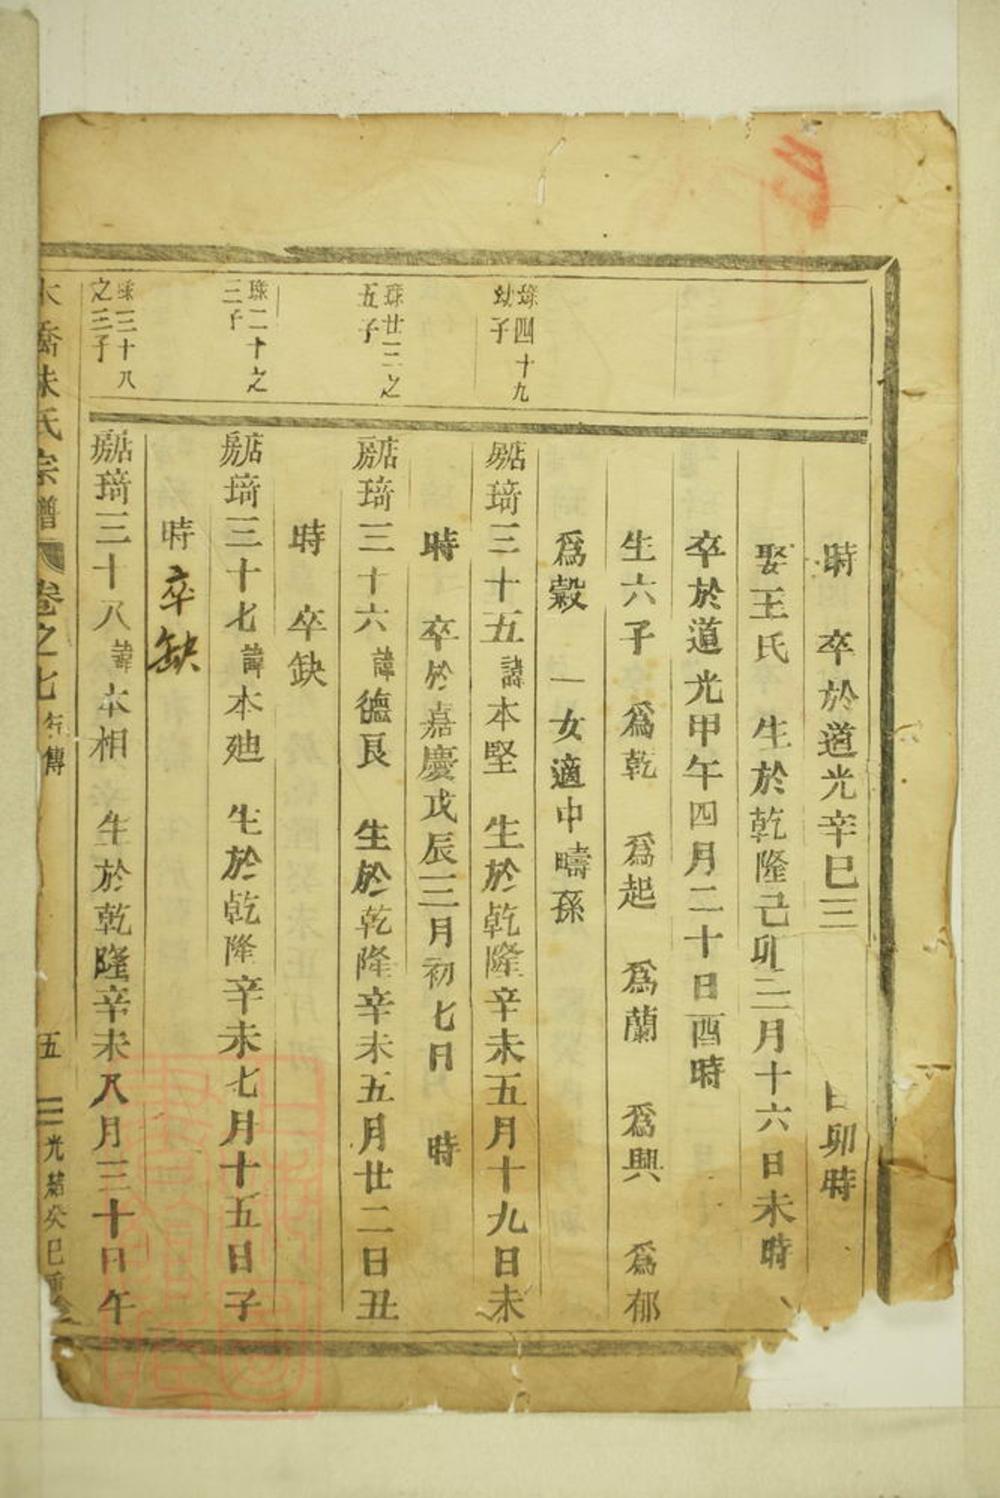 時　卒於道光辛巳三　日卯時
娶王氏　生於乾隆己卯三月十六日未時
卒於道光甲午四月二十日酉時
生六子　為乾　為起　為蘭　為興　為郁
為穀　一女適中疇孫
珠四十九
幼子
踮房琦三十五諱本堅　生於乾隆辛未五月十九日未
時　卒於嘉慶戊辰三月初七日　時
珠廿三之
五子
房琦三十六諱德艮　生於乾隆辛未五月廿二日丑
時　卒缺
珠二十之
三子
房琦三十七諱本廸　生於乾隆辛未七月十五日子
時卒缺
珠三十八
之三子
房琦三十八諱本相　生於乾隆辛未八月三十日午
橋朱氏宗譜　卷之七　行傳　五　光緒癸巳重